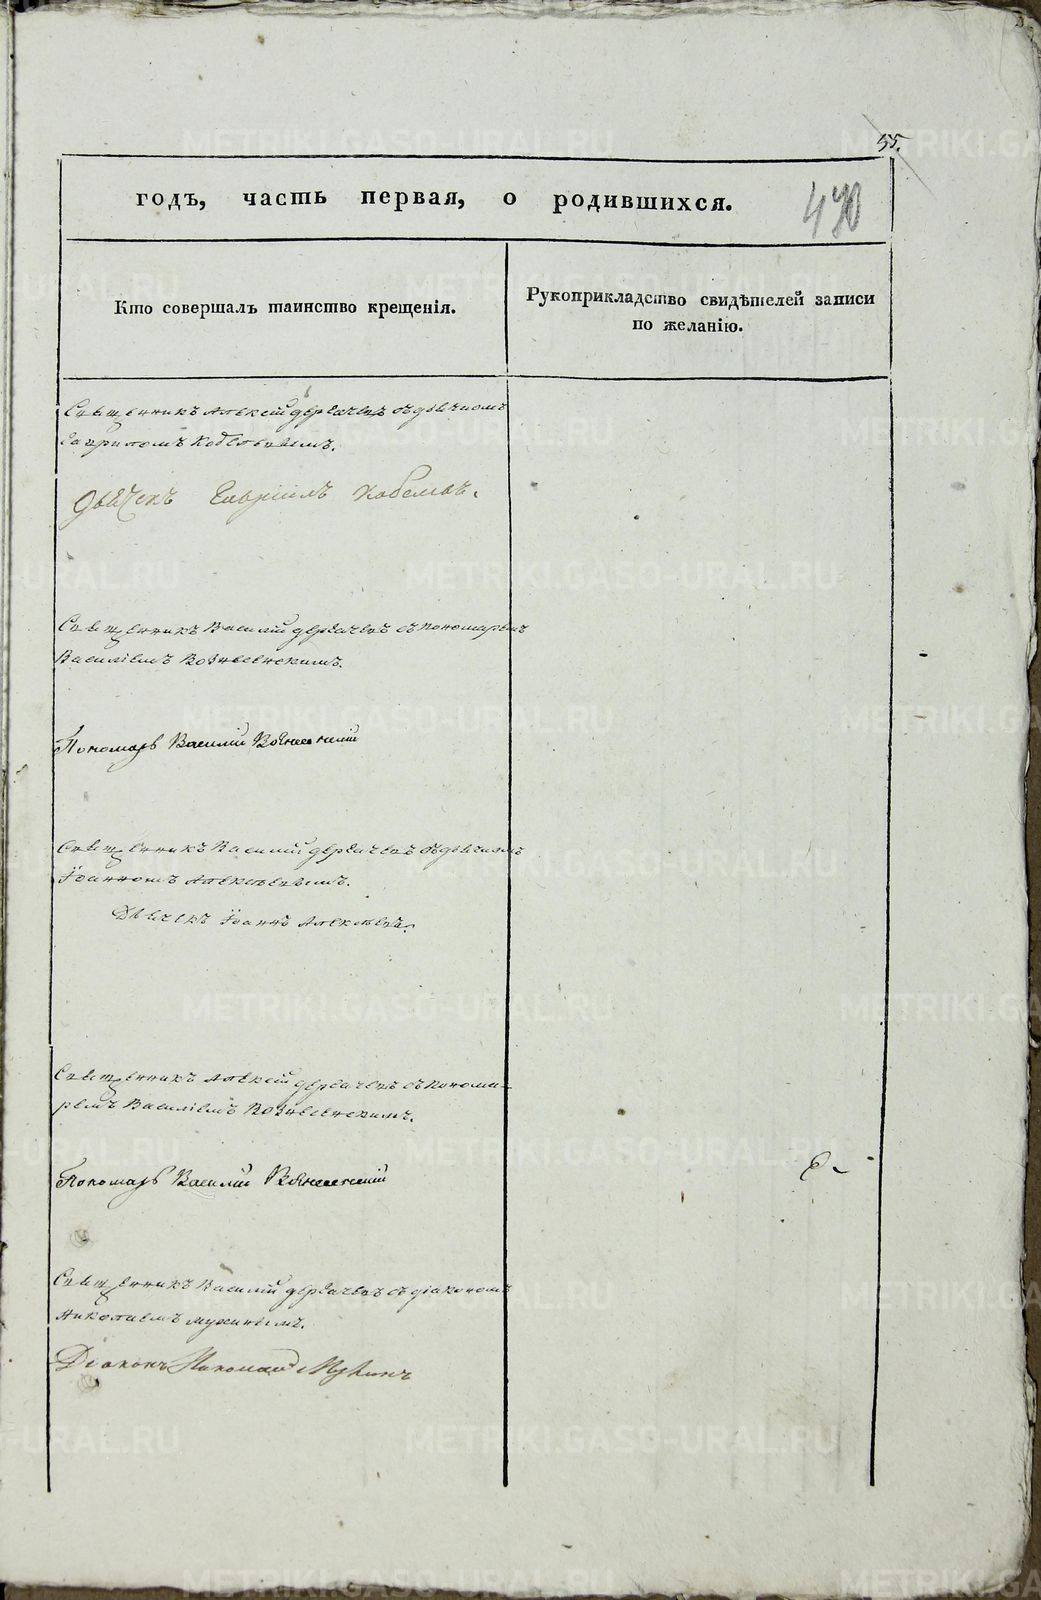 55.
годъ, часть первая, о родившихся.
490
Кто совершалъ таинство крещенія.
Рукоприкладство свидѣтелей записи
по желанію.
Священникъ Алексій Дергачевъ съ дьячкомъ
Гавриломъ Кобелевымъ.
Дьячекъ Гавріилъ Кобелевъ.
Священникъ Василій Дергачевъ съ пономаремъ
Василіемъ Вознесенскимъ.
Пономарь Василій Вознесенскій
Священникъ Василій Дергачевъ съ дьячкомъ
Іоанномъ Алексѣевымъ.
Дьячекъ Іоаннъ Алексѣевъ.
Священникъ Алексій Дергачевъ съ понома-
ремъ Василіемъ Вознесенскимъ.
Пономарь Василій Вознесенскій
Священникъ Василій Дергачевъ съ діакономъ
Николаемъ Мухинымъ.
Діаконъ Николай Мухинъ
METRIKI.GASO-URAL.RU